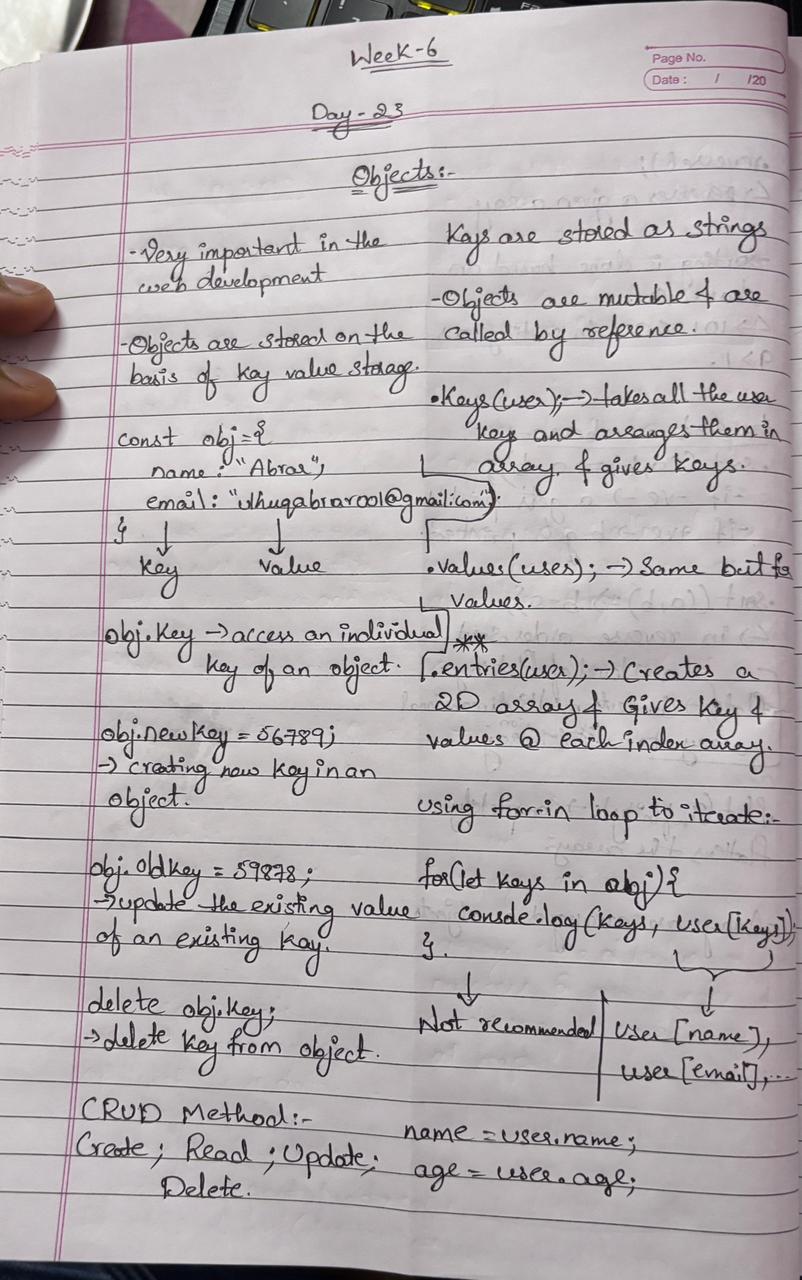 Week-6
Page No.
Date : / /20
Day-23
Objects:-
-Very important in the
web development
-Objects are stored on the
basis of key value storage.
const obj={
name: "Abrar",
email: "ulhuqabrar001@gmail.com"
}
Key Value
obj.key → access an individual
key of an object.
obj.newkey = 56789;
→ creating new key in an
object.
obj.oldkey = 59878;
→update the existing value
of an existing key.
delete obj.key;
→delete key from object.
CRUD Method:-
Create; Read; Update;
Delete.
Keys are stored as strings
-Objects are mutable & are
called by reference.
.Keys(user);→takes all the user
keys and arranges them in
array & gives keys.
.values(user);→ Same but for
values.
**
.entries(user);→ Creates a
2D array & Gives Key &
values @ each index array.
using for-in loop to iterate:-
for(let keys in obj){
console.log(keys, user[keys]);
}.
Not recommended
user [name],
user [email],...
name = user.name;
age = user.age;